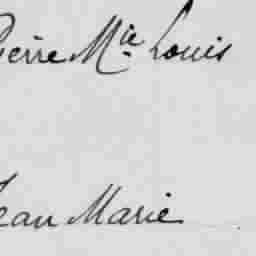 Pierre Mie Louis
Jean Marie